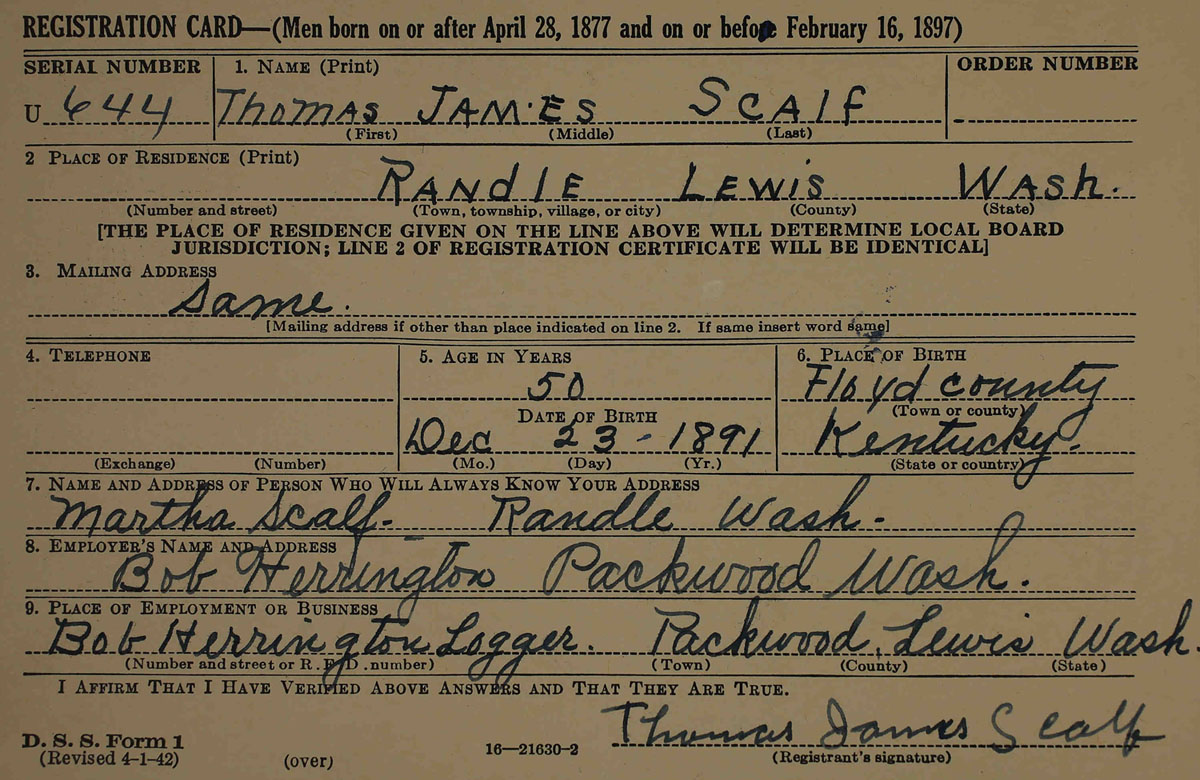 REGISTRATION CARD—(Men born on or after April 28, 1877 and on or before February 16, 1897)
SERIAL NUMBER 1. NAME (Print) ORDER NUMBER
U 644 Thomas JAMES SCAlf
(First) (Middle) (Last)
2 PLACE OF RESIDENCE (Print)
RANdlE LEWis WAsh.
(Number and street) (Town, township, village, or city) (County) (State)
[THE PLACE OF RESIDENCE GIVEN ON THE LINE ABOVE WILL DETERMINE LOCAL BOARD
JURISDICTION; LINE 2 OF REGISTRATION CERTIFICATE WILL BE IDENTICAL]
3. MAILING ADDRESS
Same.
[Mailing address if other than place indicated on line 2. If same insert word same]
4. TELEPHONE 5. AGE IN YEARS 6. PLACE OF BIRTH
50 Floyd county
DATE OF BIRTH (Town or county)
Dec 23 - 1891 Kentucky.
(Exchange) (Number) (Mo.) (Day) (Yr.) (State or country)
7. NAME AND ADDRESS OF PERSON WHO WILL ALWAYS KNOW YOUR ADDRESS
Martha Scalf- Randle Wash-
8. EMPLOYER'S NAME AND ADDRESS
Bob Herrington Packwood Wash.
9. PLACE OF EMPLOYMENT OR BUSINESS
Bob Herrington Logger. Packwood, Lewis Wash.
(Number and street or R. F. D. number) (Town) (County) (State)
I AFFIRM THAT I HAVE VERIFIED ABOVE ANSWERS AND THAT THEY ARE TRUE.
Thomas James Scalf
D. S. S. Form 1
(Revised 4-1-42) (over) 16—21630-2 (Registrant's signature)